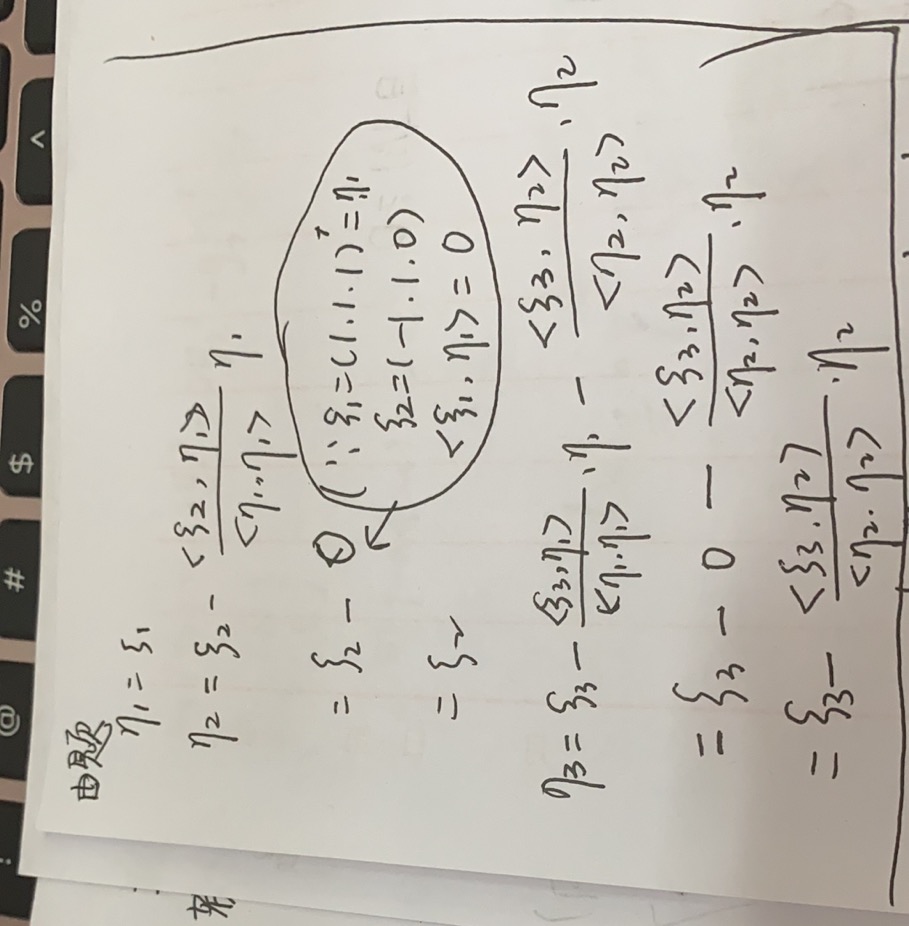 由题
η₁ = ξ₁
η₂ = ξ₂ - <ξ₂, η₁> / <η₁, η₁> η₁
= ξ₂ - 0 (∵ ξ₁ = (1.1.1)ᵀ = η₁
ξ₂ = (-1.1.0)
<ξ₁, η₁> = 0
= ξ₂
η₃ = ξ₃ - <ξ₃, η₁> / <η₁, η₁> · η₁ - <ξ₃, η₂> / <η₂, η₂> · η₂
= ξ₃ - 0 - <ξ₃, η₂> / <η₂, η₂> · η₂
= ξ₃ - <ξ₃, η₂> / <η₂, η₂> · η₂
@
#
$
%
^